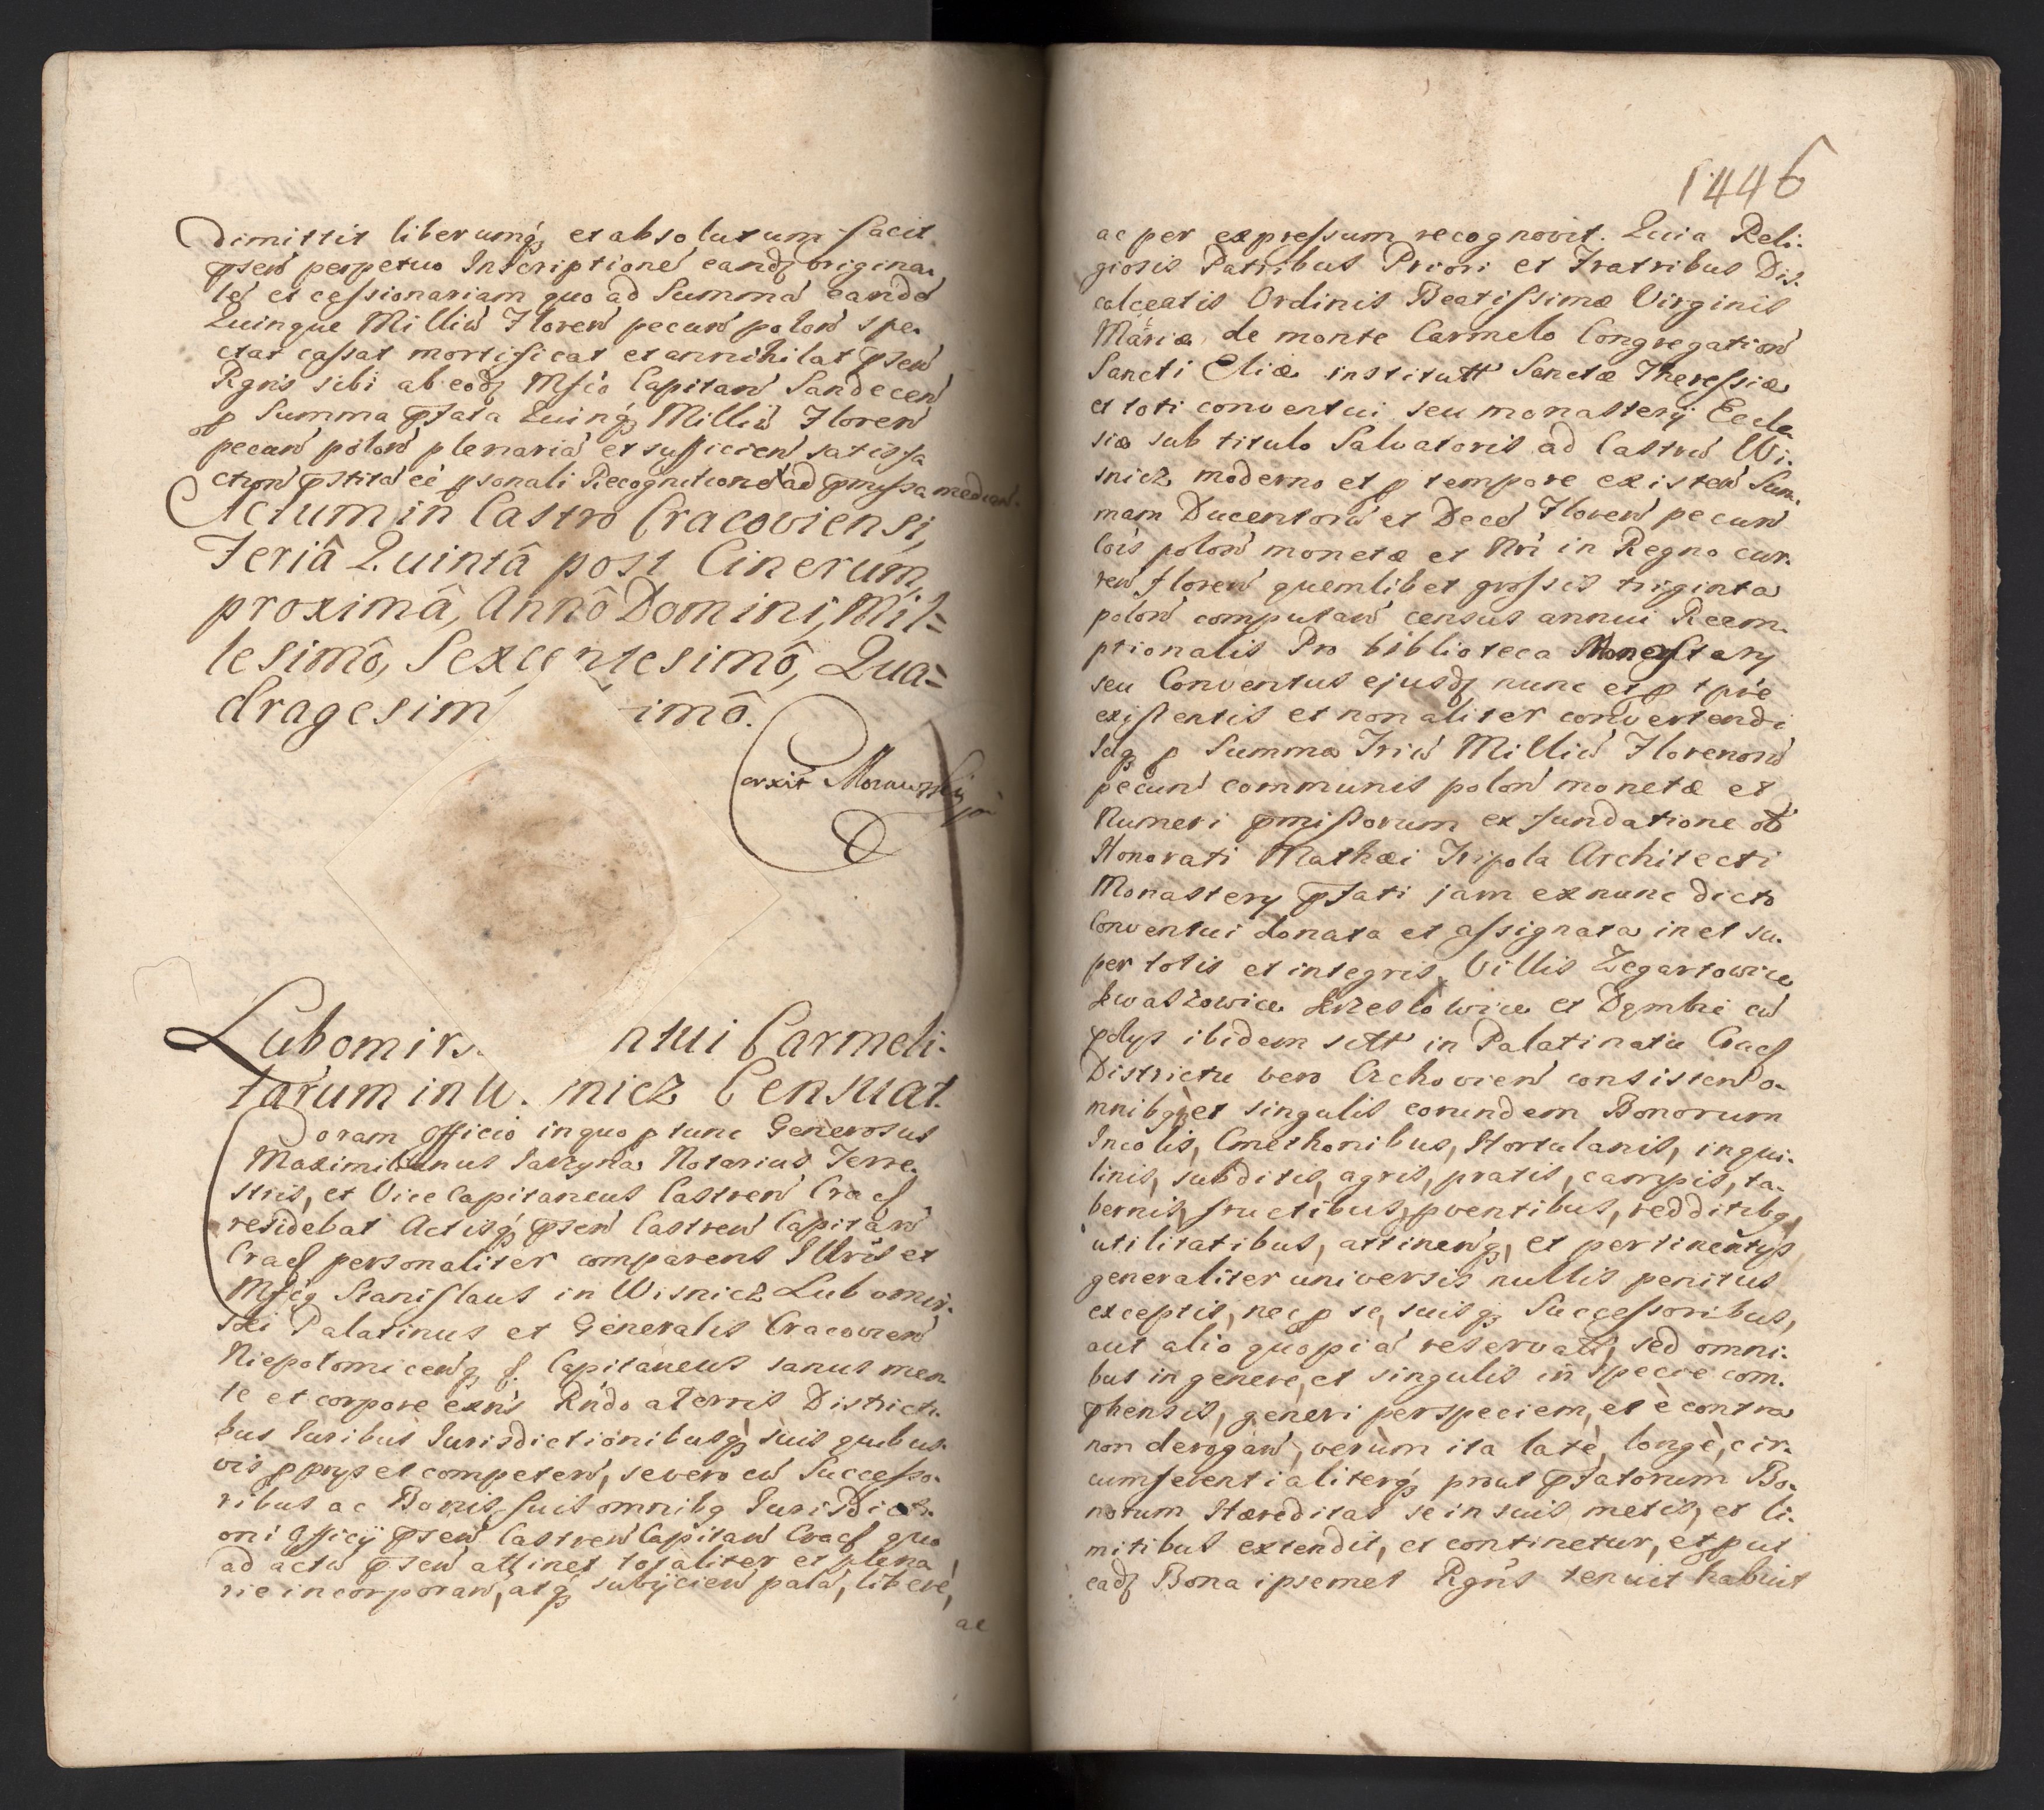 dimittit liberumq; et absolutum facit
pñsen perpetuo Inscriptione eandq origina
le et cessionariam quo ad Summa eande
Quinque Milliu Floren pecun polon spe
ctat cassat mortificat et annihilat pñsen
Rgns sibi ab eodq Mfco Capitan Sandecen
p Summa pfata Quinq; Milliu Floren
pecun polon plenaria et sufficien satisfa
ction pstita eê psonali Recognitione ad pmissa median.
Actum in Castro Cracoviensi,
Feriâ Quintâ post Cinerum,
proximâ, Annô Domini, Mil=
lesimô, Sexcentesimô, Qua=
dragesim imô.
Lubomirs. ntui Carmeli-
tarum in W. nicz Censuat.
Coram Officio in quo p tunc Generosus
Maximilianus Notarius Terre.
stris, et Vice Capitaneus Castren Cracs
residebat Actisq; pñsen Castren Capitan
Cracs personaliter comparens Illris et
Mfcq Stanislaus in Wisnicz Lubomir.
ski Palatinus et Generalis Cracovien
Niepolomicenq; Capitaneus sanus men
te et corpore exns Rndo a Terris Districti.
bus Iuribus Iurisdictionibusq; suis quibus.
vis pprys et competen, se vero cu Successo.
ribus ac Bonis suis omnibq Iurisdicti.
oni Officij pñsen Castren Capitan Cracs quo
ad actu pñsen attinet totaliter et plena
rie incorporan, atq; subijcien pala, libere,
ac
1446
ac per expressum recognovit. Quia Reli.
giosis Patribus Priori et Fratribus Dis.
calceatis Ordinis Beatissimæ Virginis
Mariæ de monte Carmelo Congregation
Sancti Eliæ institutt Sanctæ Theressiæ
et toti conventui seu monastery Eccle
siæ sub titulo Salvatoris ad Castru Wi.
snicz moderno et p tempore existen Sum.
mam Ducentoru et Dece Floren pecun
cois polon monetæ et Nri in Regno cur.
ren floren quemlibet grossis triginta
polon computan census annui Reem.
ptionalis Pro biblioteca Monastery
seu Conventus ejusdq nunc et p tpre
existentis et non aliter convertendi
Idq p Summa Triu Milliu Florenoru
pecun communis polon monetæ et
Numeri pmissorum ex fundatione ob
Honorati Mathæi Tripola Architecti
Monastery pfati jam ex nunc dicto
Conventui donata et assignata in et su.
per totis et integris Villis Zegartowice
Kwaszowice Krzeslowice et Dembie cu
pdys ibidem sitt in Palatinatu Cracs
Districtu vero consisten o.
mnibq; et singulis eorundem Bonorum
Incolis, Cmethonibus, Hortulanis, inqui.
linis, subditis, agris, pratis, campis, ta.
bernis, fructibus, pventibus, redditibq,
utilitatibus, attinenq;, et pertinentys
generaliter universis nullis penitus
exceptis, nec p se, suisq; Successoribus,
aut alio quopia reservatt, sed omni.
bus in genere, et singulis in specie com.
phensis, generi per speciem, et è contra
non derogan, verùm ita latè, longè, cir.
cumferentialiterq; prout pfatorum Bo.
norum Hæreditas se in suis metis, et li.
mitibus extendit, et continetur, et put
eadq Bona ipsemet Rgns tenuit habuit